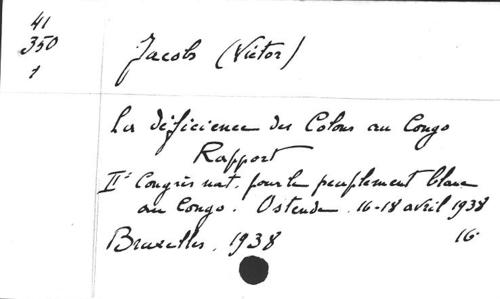 41
350
1
Jacobs (Victor)
La déficience des Colons au Congo
Rapport
IIe Congrès nat. pour le peuplement blanc
au Congo. Ostende. 16-18 avril 1938
Bruxelles, 1938
16°